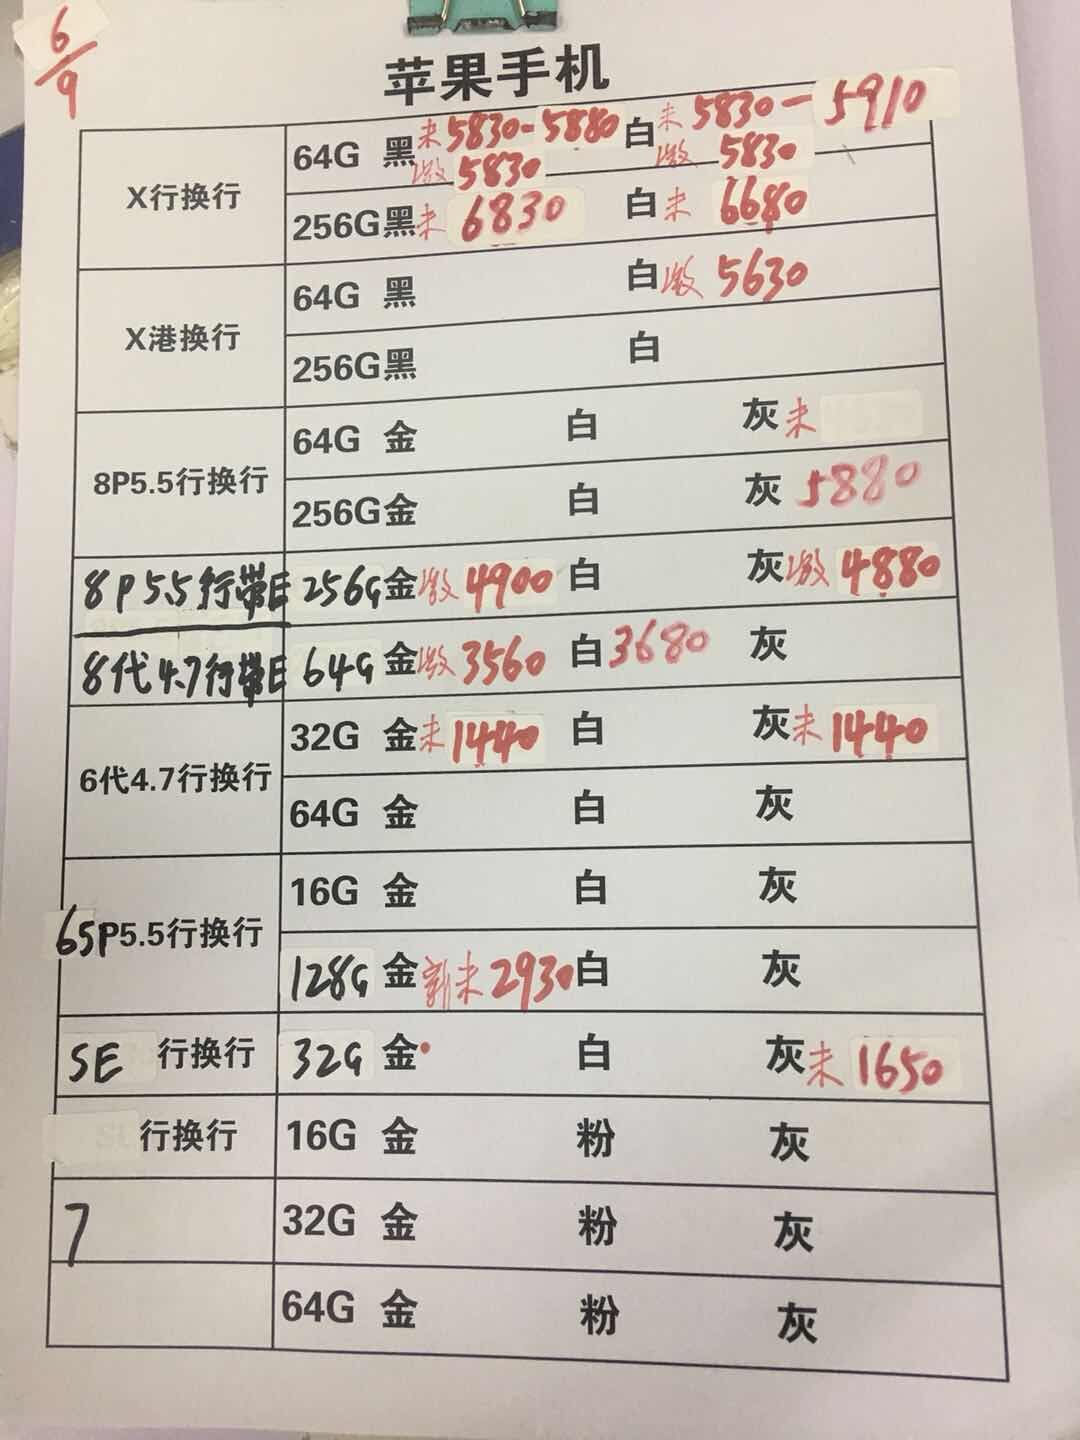 6/9
苹果手机
X行换行
64G 黑未5830-5880 白未5830-5910
激5830 激5830
256G黑未6830 白未6680
X港换行
64G 黑 白激5630
256G黑 白
8P5.5行换行
64G 金 白 灰未
256G金 白 灰5880
8P5.5行带E 256G 金激4900 白 灰激4880
8代4.7行带E 64G 金激3560 白3680 灰
6代4.7行换行
32G 金未1440 白 灰未1440
64G 金 白 灰
6SP5.5行换行
16G 金 白 灰
128G 金新未2930 白 灰
SE 行换行 32G 金 白 灰未1650
行换行 16G 金 粉 灰
7 32G 金 粉 灰
64G 金 粉 灰